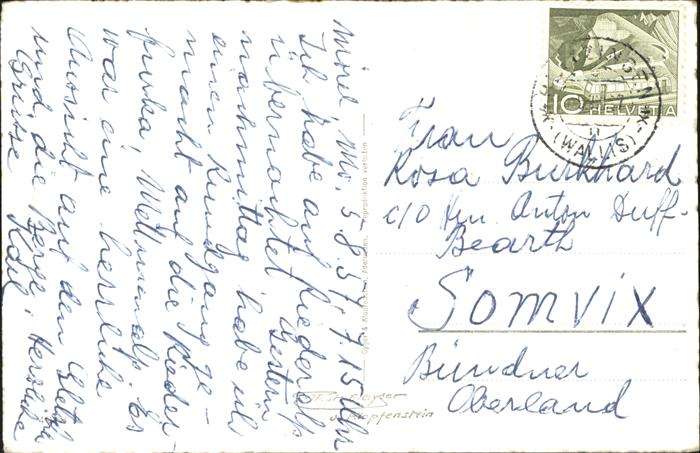 Mörel Mo. 5.8.57. 7.15 Uhr
Ich habe auf Riederalp
übernachtet. Gestern
nachmittag habe ich
einen Rundgang ge-
macht auf die Rieder-
furka,
war eine herrliche Es
Aussicht auf den Gletscher
und die Berge. Herzliche
Grüsse
10 HELVETIA
(WALLIS)
Frau
Rosa Burkhard
c/o Hrn. Anton Duff-
Bearth
Somvix
Bündner
Oberland